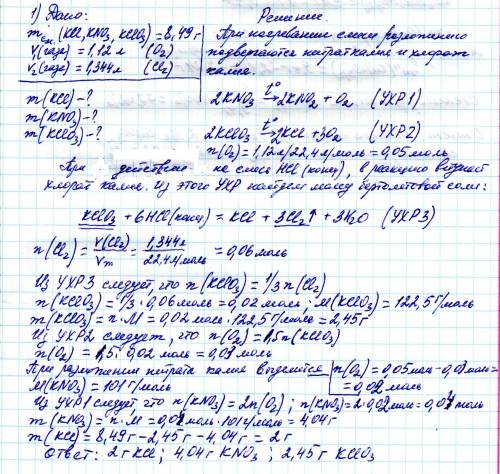 1) Дано:
Решение.
m см. (KCl, KNO₃, KClO₃) = 8,49 г
V₁(газа) = 1,12 л (O₂)
V₂(газа) = 1,344 л (Cl₂)
При нагревании смеси разложению
подвергаются нитрат калия и хлорат
калия.
m(KCl) - ?
m(KNO₃) - ?
m(KClO₃) - ?
2KNO₃ t°→ 2KNO₂ + O₂ (УХР1)
2KClO₃ t°→ 2KCl + 3O₂ (УХР2)
n(O₂) = 1,12л/22,4л/моль = 0,05 моль
При действии на смесь HCl (конц), в реакцию вступает
хлорат калия. Из этого УХР найдем массу бертолетовой соли:
KClO₃ + 6HCl(конц) = KCl + 3Cl₂↑ + 3H₂O (УХР3)
n(Cl₂) = V(Cl₂)/Vm = 1,344л/22,4л/моль = 0,06 моль
Из УХР3 следует, что n(KClO₃) = 1/3 n(Cl₂)
n(KClO₃) = 1/3 · 0,06 моль = 0,02 моль; M(KClO₃) = 122,5 г/моль
m(KClO₃) = n · M = 0,02 моль · 122,5 г/моль = 2,45 г
Из УХР2 следует, что n(O₂) = 1,5n(KClO₃)
n(O₂) = 1,5 · 0,02 моль = 0,03 моль
При разложении нитрата калия выделится n(O₂) = 0,05моль - 0,03моль =
= 0,02 моль
M(KNO₃) = 101 г/моль
Из УХР1 следует, что n(KNO₃) = 2n(O₂); n(KNO₃) = 2 · 0,02моль = 0,04 моль
m(KNO₃) = n · M = 0,04 моль · 101 г/моль = 4,04 г
m(KCl) = 8,49 г - 2,45 г - 4,04 г = 2 г
Ответ: 2 г KCl; 4,04 г KNO₃; 2,45 г KClO₃